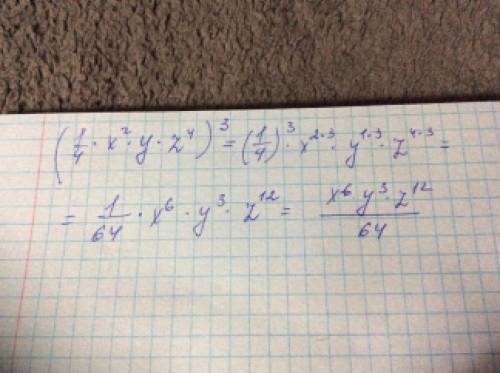 (1/4 · x² · y · z⁴)³ = (1/4)³ · x²·³ · y¹·³ · z⁴·³ =
= 1/64 · x⁶ · y³ · z¹² = x⁶ y³ · z¹²/64